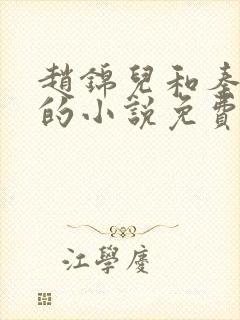 趙錦兒和秦
的小說免費
江學慶